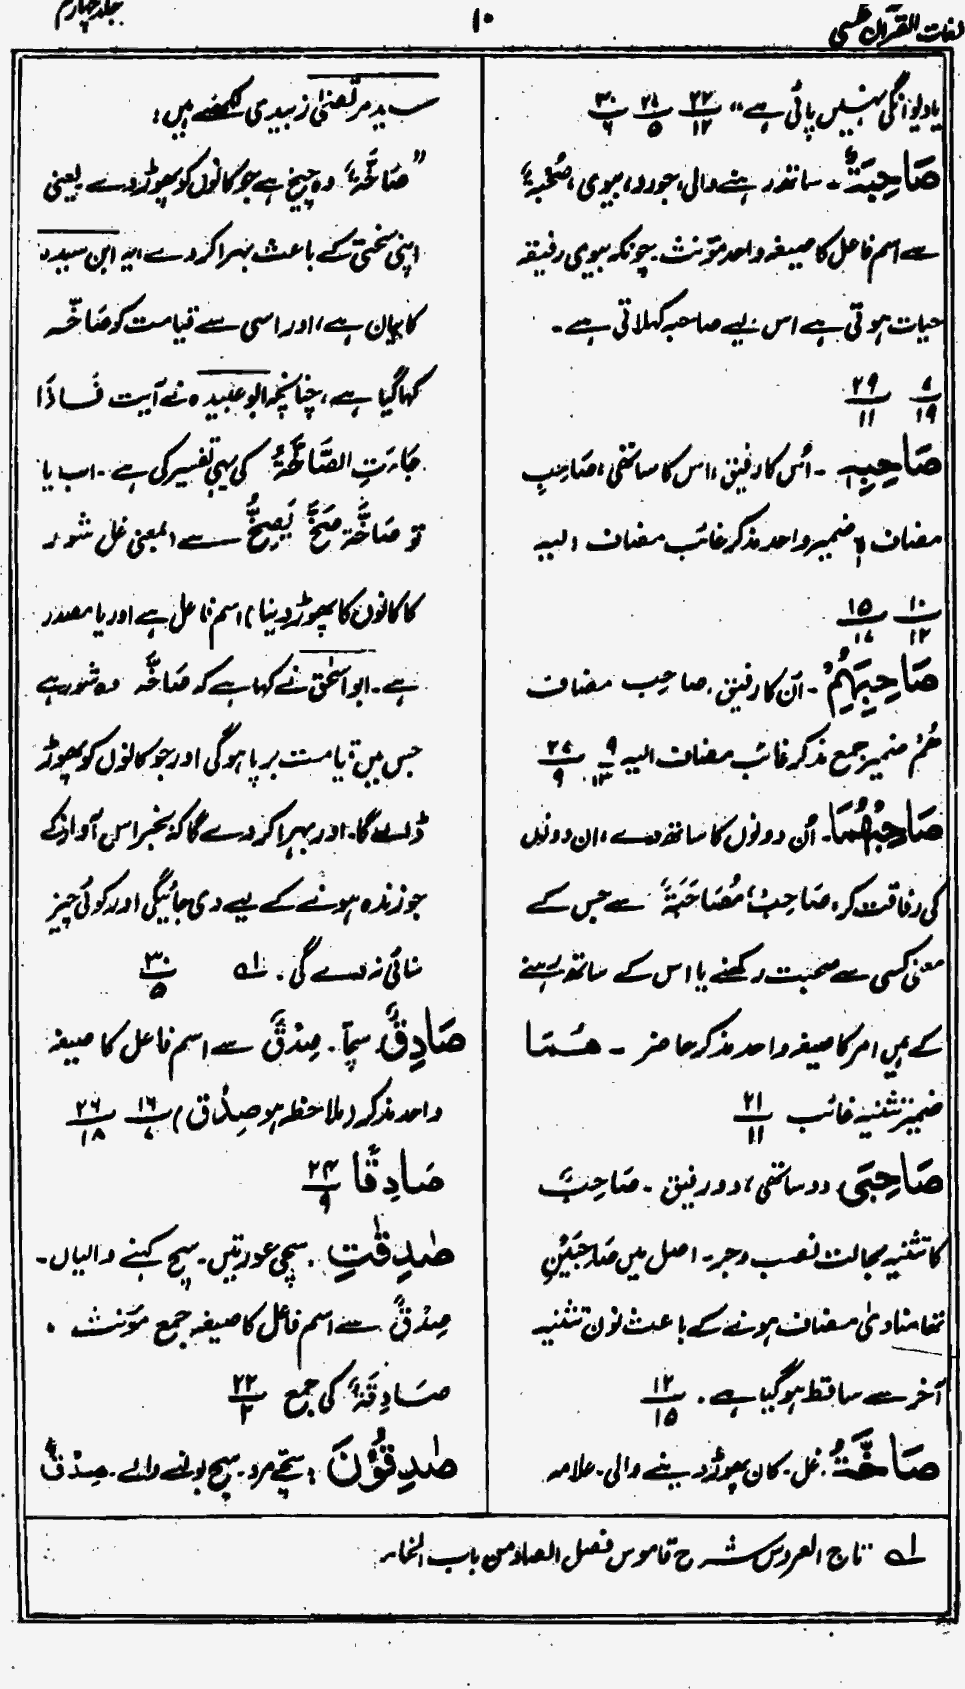 لغات القرآن
١٠
جلد چہارم
یا دیوانگی نہیں پائی ہے" ٢٢/١٢ ٢١/٥ ٣٠/٦
صَاحِبَةٌ۔ ساتھ رہنے والی، جورو، بیوی، صُحْبَةٌ
سے اسم فاعل کا صیغہ واحد مؤنث۔ چونکہ بیوی رفیقہ
حیات ہوتی ہے اس لیے صاحبہ کہلاتی ہے۔
٧/١٩ ٢٩/١١
صَاحِبِهٖ۔ اُس کا رفیق، اس کا ساتھی، صَاحِبِ
مضاف ہٖ ضمیر واحد مذکر غائب مضاف الیہ
١٠/١٢ ١٥/١٧
صَاحِبَهُمْ۔ اُن کا رفیق، صاحِب مضاف
هُمْ ضمیر جمع مذکر غائب مضاف الیہ ٩/١٣ ٢٧/٩
صَاحِبْهُمَا۔ اُن دونوں کا ساتھ دے، ان دونوں
کی رفاقت کر، صَاحِبْ، مُصَاحَبَةٌ سے جس کے
معنی کسی سے صحبت رکھنے یا اس کے ساتھ رہنے
کے ہیں امر کا صیغہ واحد مذکر حاضر۔ هُمَا
ضمیر تثنیہ غائب ٢١/١١
صَاحِبَیِ دو ساتھی، دو رفیق۔ صَاحِبٌ
کا تثنیہ بحالت نصب و جر۔ اصل میں صَاحِبَيْنِ
تھا منادیٰ مضاف ہونے کے باعث نون تثنیہ
آخر سے ساقط ہو گیا ہے۔ ١٢/١٥
صَاخَّةُ۔ غل۔ کان پھوڑ دینے والی۔ علامہ
سید مرتضیٰ زبیدی لکھتے ہیں:
"صَاخَّةٌ، وہ چیخ ہے جو کانوں کو پھوڑ دے یعنی
اپنی سختی کے باعث بہرا کر دے یہ ابن سیدہ
کا بیان ہے، اور اسی سے قیامت کو صَاخَّہ
کہا گیا ہے، چنانچہ ابو عبیدہ نے آیت فَاِذَا
جَاءَتِ الصَّاخَّةُ کی یہی تفسیر کی ہے۔ اب یا
تو صَاخَّة صَخَّ یَصِخُّ سے (بمعنی غل شور
کا کانوں کا پھوڑ دینا) اسم فاعل ہے اور یا مصدر
ہے۔ ابو اسحٰق نے کہا ہے کہ صَاخَّہ وہ شور ہے
جس میں قیامت برپا ہوگی اور جو کانوں کو پھوڑ
ڈالے گا۔ اور بہرا کر دے گا کہ بجز اس آواز کے
جو زندہ ہونے کے لیے دی جائیگی اور کوئی چیز
سنائی نہ دے گی۔ لہ ٣٠/٥
صَادِقٌ سچّا۔ صِدْقٌ سے اسم فاعل کا صیغہ
واحد مذکر (ملاحظہ ہو صِدْق) ١٦/٧ ٢٦/١٨
صَادِقًا ٢٤/٩
صٰدِقٰتِ۔ سچی عورتیں۔ سچ کہنے والیاں۔
صِدْقٌ سے اسم فاعل کا صیغہ جمع مؤنث،
صَادِقَةٌ کی جمع ٢٢/٢
صٰدِقُوْنَ، سچّے مرد۔ سچ بولنے والے۔ صِدْقٌ
لہ تاج العروس شرح قاموس فصل الصاد من باب الخاء